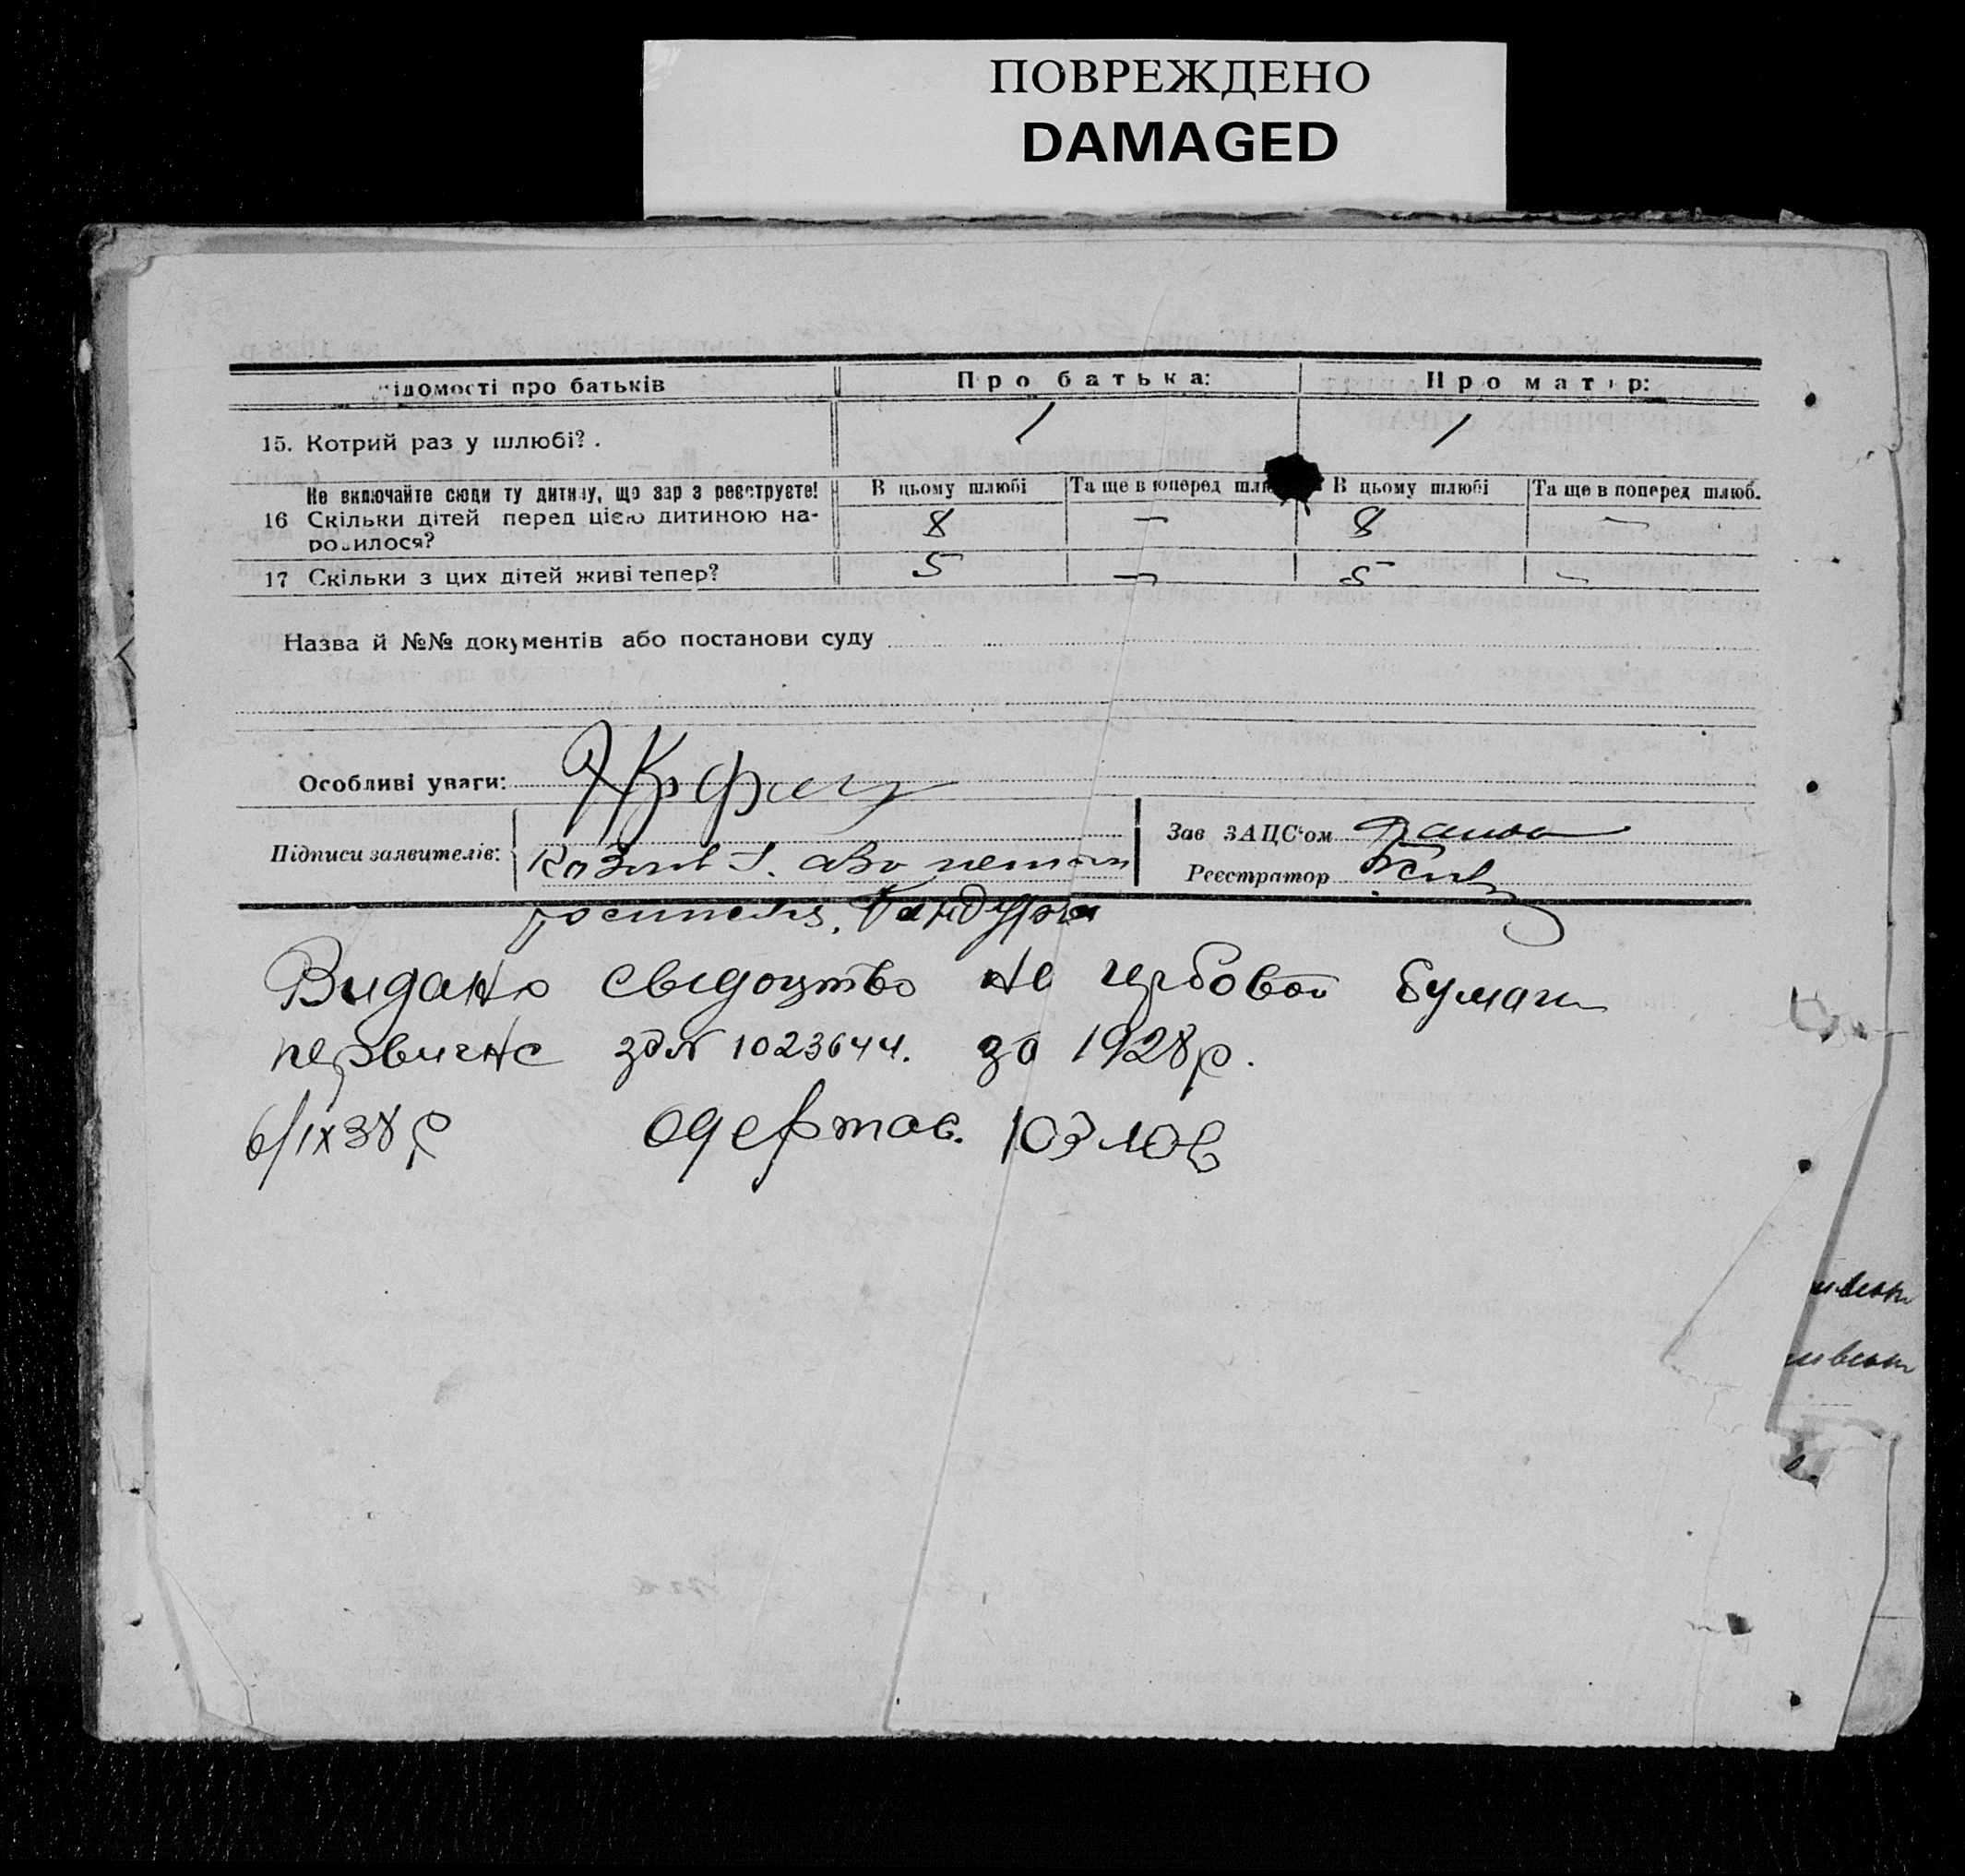 ПОВРЕЖДЕНО
DAMAGED
ідомості про батьків Про батька: Про матір:
15. Котрий раз у шлюбі? . 1 1
Не включайте сюди ту дитину, що зараз реєструєте! В цьому шлюбі Та ще в поперед шлю В цьому шлюбі Та ще в поперед шлюб.
16 Скільки дітей перед цією дитиною на- 8 — 8 —
родилося?
17 Скільки з цих дітей живі тепер? 5 — 5 —
Назва й №№ документів або постанови суду
Особливі уваги:
Підписи заявителів: Козлов
Зав ЗАЦС'ом
Реєстратор
Бандура
Видано свідоцтво на гербовой бумаги
первичне за № 1023644. за 1928 р.
6/IX 38 р одержав. Козлов